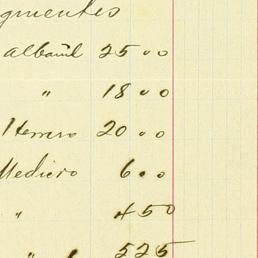 gmentes
albañil 25 00
" 18 00
Herrero 20 00
Medicio 6 00
" 4 50
" 5 25